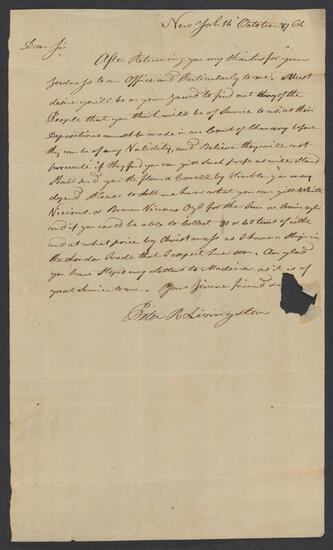 New York 14 October 1764
Dear Sir
After Returning you my thanks for your
kindness to an Office and Particularly to me. Must
desire you'll be on your Guard to find out any of the
People that you think will be of Service to us as their
Depositions must be made in our Court of Chancery before
they can be of any Validity, and Believe they will not
prosecute if they find you can gitt such proofs as will Stand
Shall send you the by you may
depend. Please to let me know what you can gitt White
or Brown for the Sun or Average
and if you could be able to Collect 30 or 40 tons of the
and at what price by Christmass as I have a Ship in
the London Trade that I expect here soon. Am glad
you have Ship'd my letters to Madeira as it is of
great Service to me. Your Sincere friend
Peter R Livingston